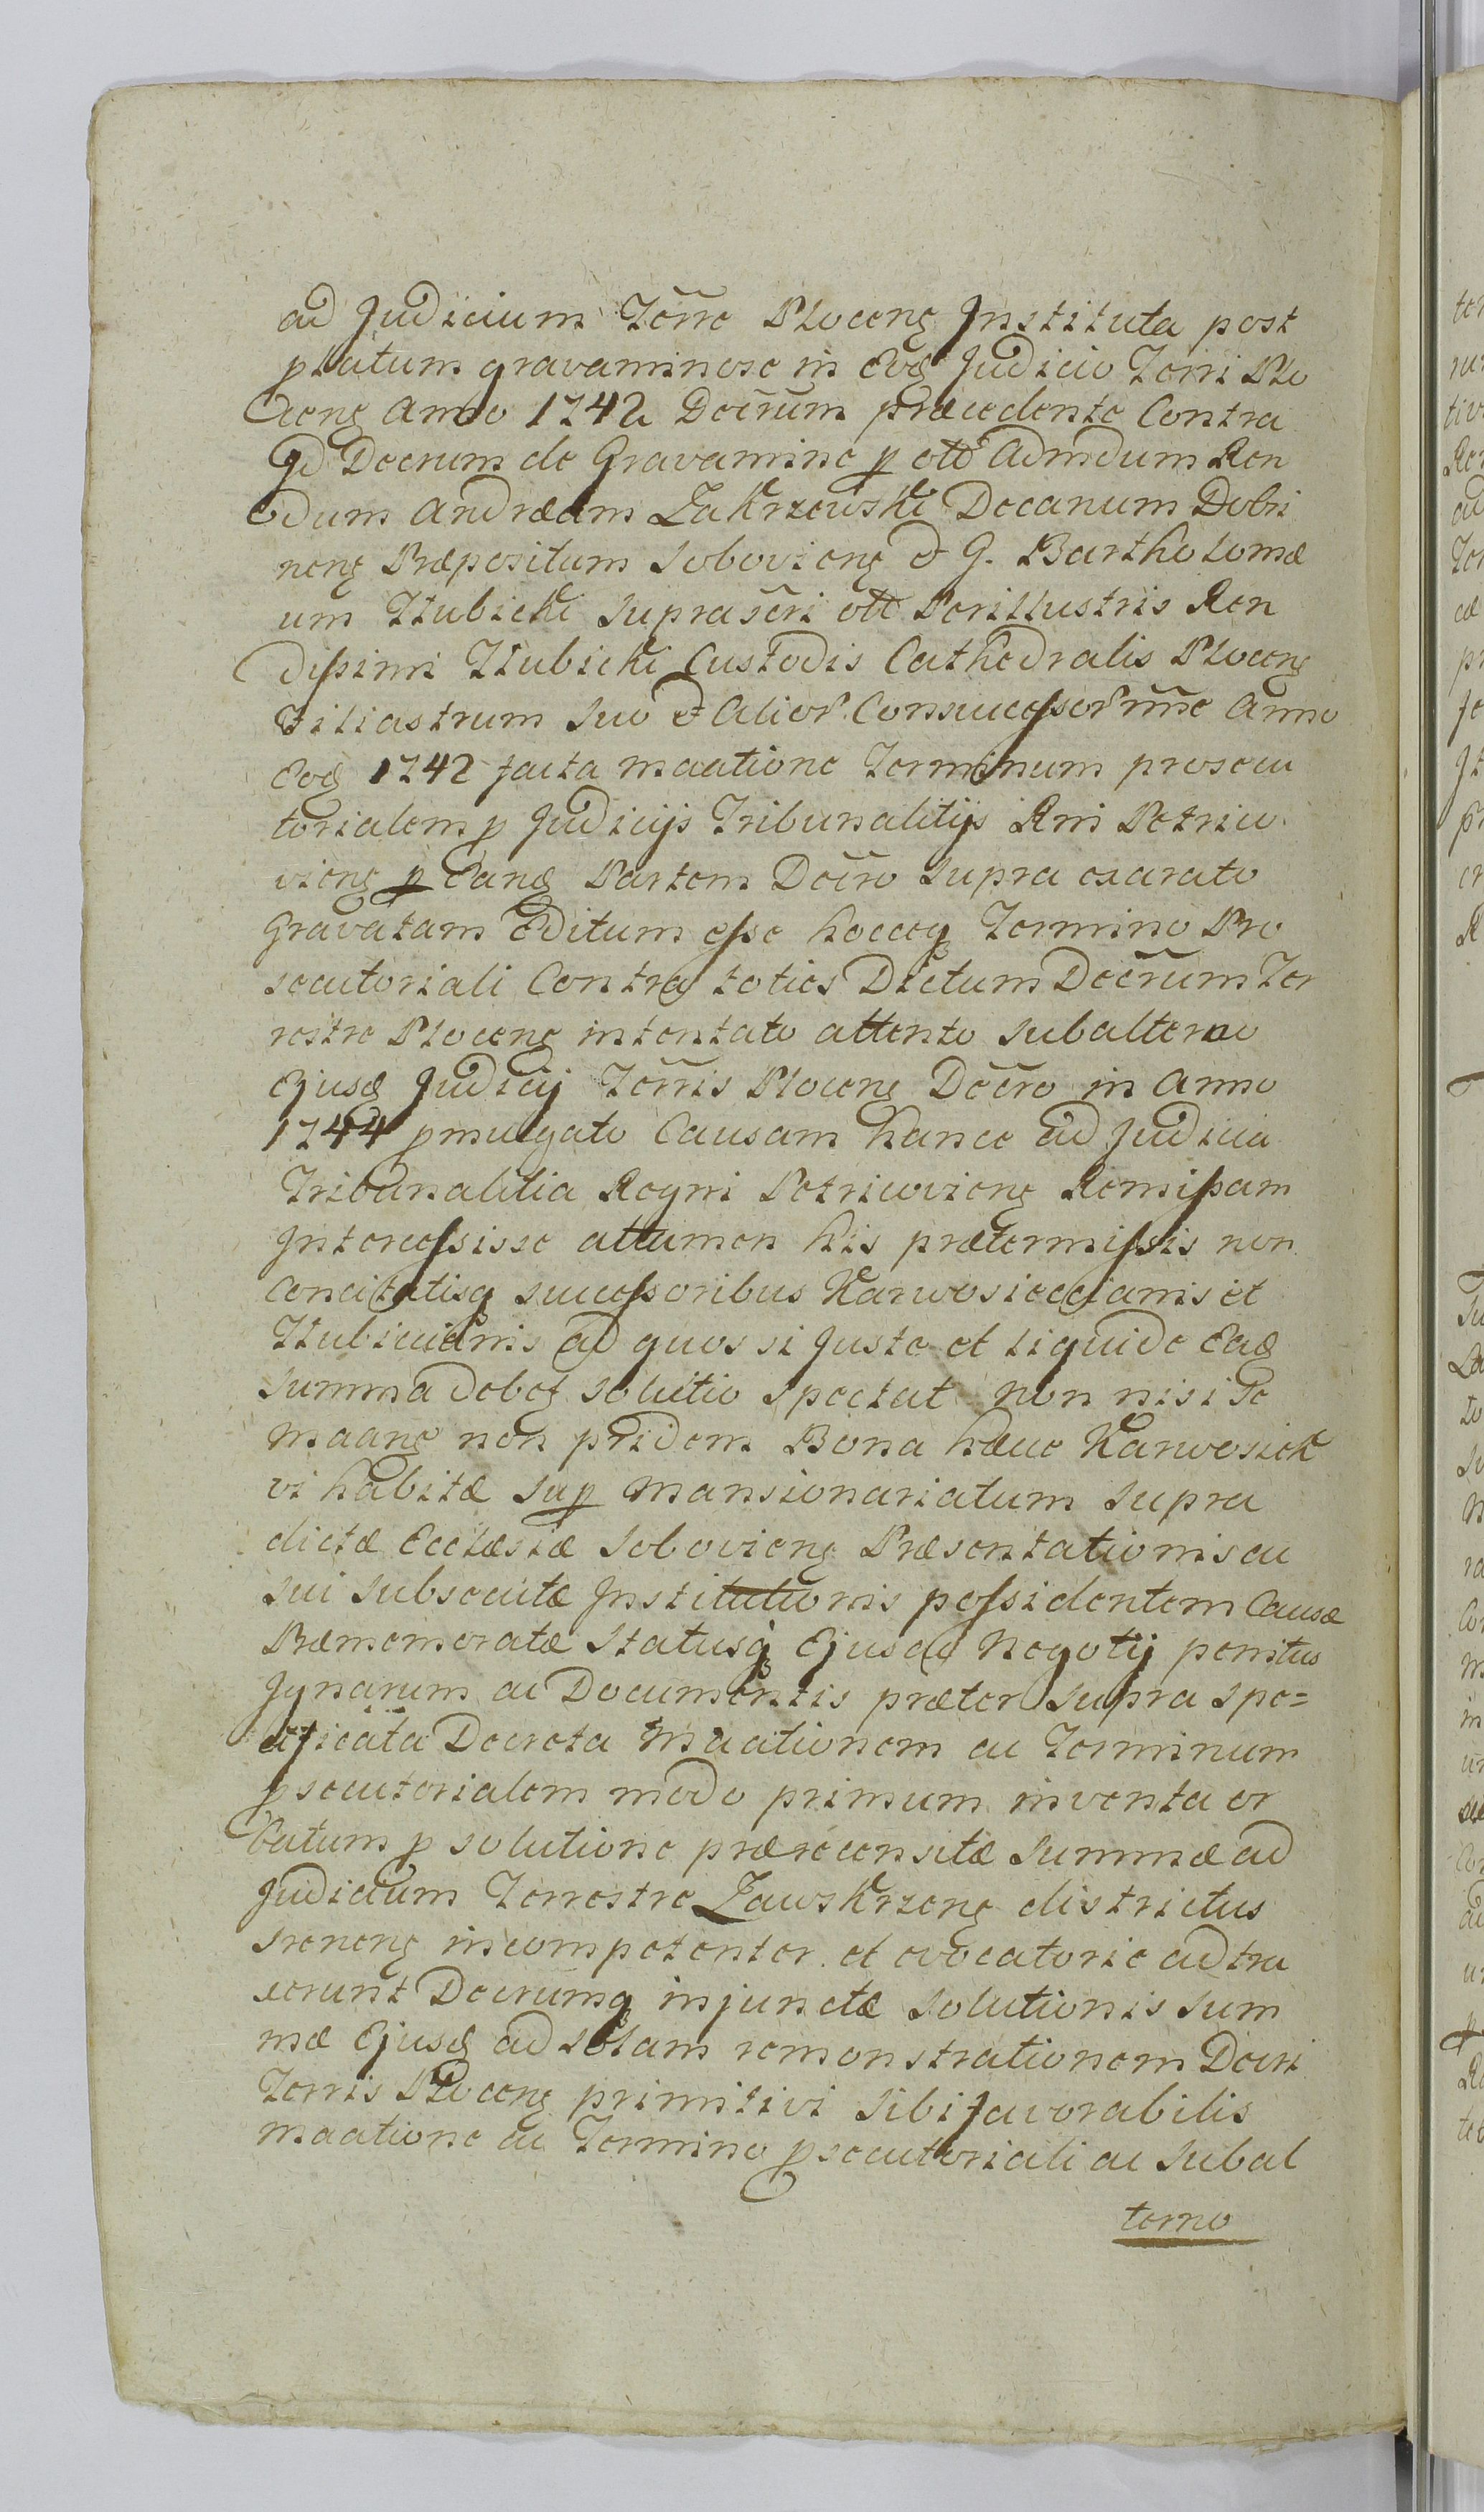 ad Judicium Terre Plocens Instituta post
platum gravaminose in Eod Judicio Terri Plo
cens Anno 1742 Decrum præcedente Contra
Qd Decrum de Gravamine p olt Admdum Ren
dum Andræam Zakrzewski Decanum Dobri
nens Præpositum Soboviens & G. Bartholomæ
um Hubicki Suprascri olt Perillustris Ren
dissimi Hubicki Custodis Cathedralis Plocens
Filiastrum Suo & Alior Consuccessor nne Anno
Eod 1742 facta maatione Terminum prosecu
torialem p Judicijs Tribunalitijs Rni Petricu
viens p Eand Partem Decro supra exarato
Gravatam Editum esse hocceq Termino Pro
secutoriali Contra toties Dictum Decrum Ter
restre Plocens intentato attento Subalterno
Ejusd Judicij Terris Plocens Decro in Anno
1744 pmulgato Causam hance ad Judicia
Tribunalitia Regni Petricoviens Remissam
Intercessisse attamen his prætermissis non
Concitatisq successoribus Karwosiecianis et
Hubicianis ad quos si juste et liquide Ead
Summa debet solutio spectat non nisi Se
maane non pridem Bona hæcce Karwosiek
vi habitæ sup Mansionariatum supra
dictæ Ecclæsiæ Soboviens Præsentationis ac
sui subsecutæ Institutionis possidentem Causæ
Præmemoratæ Statusq Ejusd Negotij penitus
Ignarum ac Documentis præter supra spe=
cificata Decreta Maationem ac Terminum
psecutorialem modo primum inventa or
batum p solutione præreconsitæ Summæ ad
Judicium Terrestre Zawskrzens districtus
Srenens incompetenter et evocatorie adtra
xerunt Decrumq injunctæ Solutionis Sum
mæ Ejusd ad solam remonstrationem Decri
Terris Plocens primitivi sibi favorabilis
maatione ac Termino psecutoriali ac Subal
terno